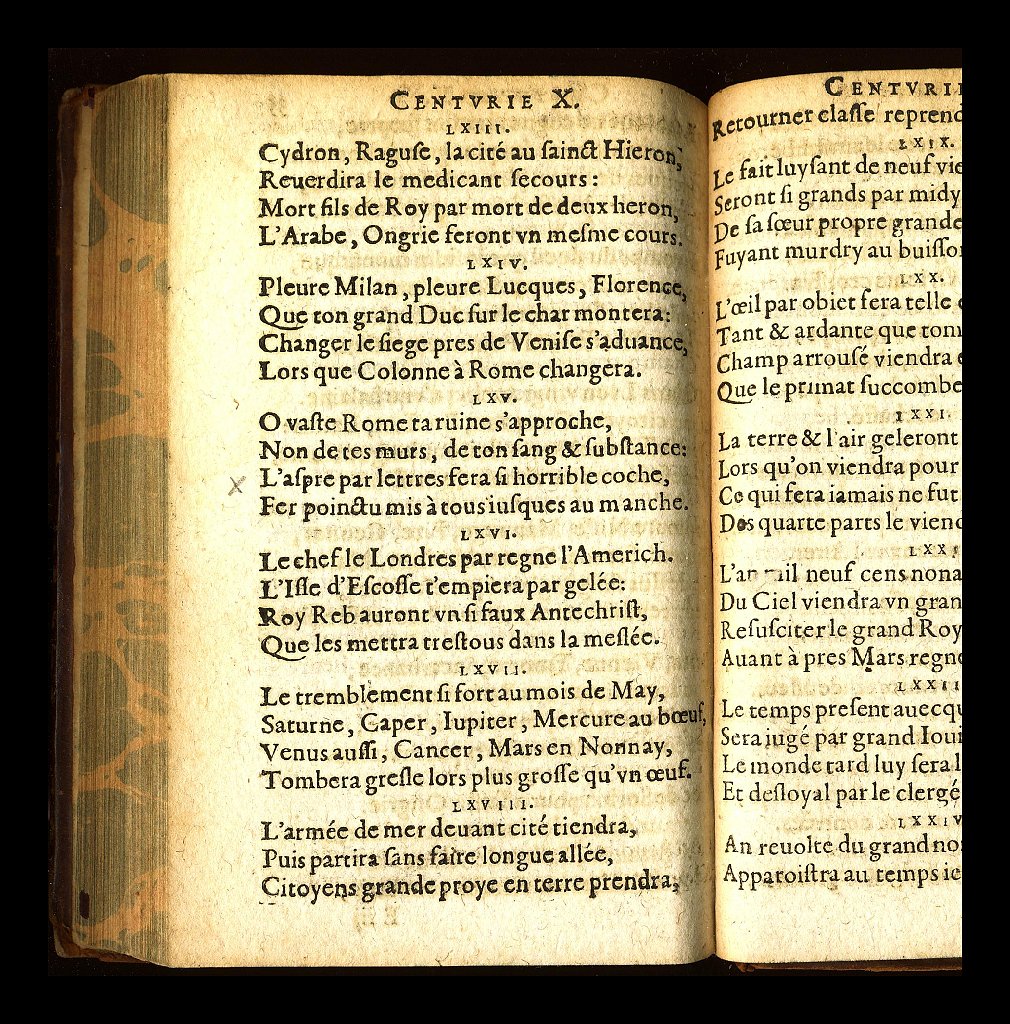 CENTVRIE X.
LXIII.
Cydron, Raguſe, la cité au ſainct Hieron,
Reuerdira le medicant ſecours:
Mort fils de Roy par mort de deux heron,
L'Arabe, Ongrie feront vn meſme cours.
LXIV.
Pleure Milan, pleure Lucques, Florence,
Que ton grand Duc ſur le char montera:
Changer le ſiege pres de Veniſe s'aduance,
Lors que Colonne à Rome changera.
LXV.
O vaſte Rome ta ruine s'approche,
Non de tes murs, de ton ſang & ſubſtance:
L'aſpre par lettres fera ſi horrible coche,
Fer poinctu mis à tous iuſques au manche.
LXVI.
Le chef le Londres par regne l'Americh.
L'Iſle d'Eſcoſſe t'empiera par gelée:
Roy Reb auront vn ſi faux Antechriſt,
Que les mettra treſtous dans la meſlée.
LXVII.
Le tremblement ſi fort au mois de May,
Saturne, Caper, Iupiter, Mercure au bœuf,
Venus auſſi, Cancer, Mars en Nonnay,
Tombera greſſe lors plus groſſe qu'vn œuf.
LXVIII.
L'armée de mer deuant cité tiendra,
Puis partira ſans faire longue allée,
Citoyens grande proye en terre prendra,
CENTVRI
Retourner claſſe reprend
LXIX.
Le fait luyſant de neuf vie
Seront ſi grands par midy
De ſa ſœur propre grande
Fuyant murdry au buiſſo
LXX.
L'œil par obiect fera telle
Tant & ardante que tom
Champ arrouſé viendra
Que le primat ſuccombe
LXXI.
La terre & l'air geleront
Lors qu'on viendra pour
Ce qui ſera iamais ne fut
Des quarte parts le viend
LXXI
L'an mil neuf cens nona
Du Ciel viendra vn gran
Reſuſciter le grand Roy
Auant à pres Mars regne
LXXIII
Le temps preſent auecqu
Sera iugé par grand Ioui
Le monde tard luy ſera l
Et deſloyal par le clergé
LXXIV
An reuolte du grand no
Apparoiſtra au temps ie